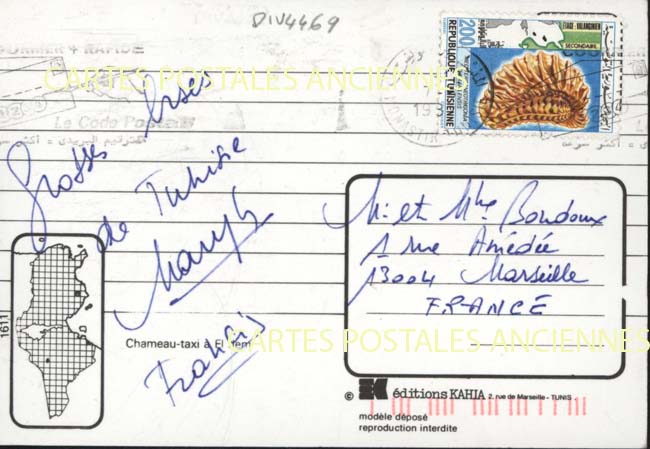 DIV4469
ÉTAGE : VALANGINIEN
SECONDAIRE
200
REPUBLIQUE TUNISIENNE
CARTES POSTALES ANCIENNES
Le Code Postal
Grosses bises
de Tunisie
Francis
Mr et Mme Boudoux
1 rue Amédée
13004 Marseille
FRANCE
1611
Chameau-taxi à El Jem
CARTES POSTALES ANCIENNES
© éditions KAHIA 2, rue de Marseille - TUNIS.
modèle déposé
reproduction interdite